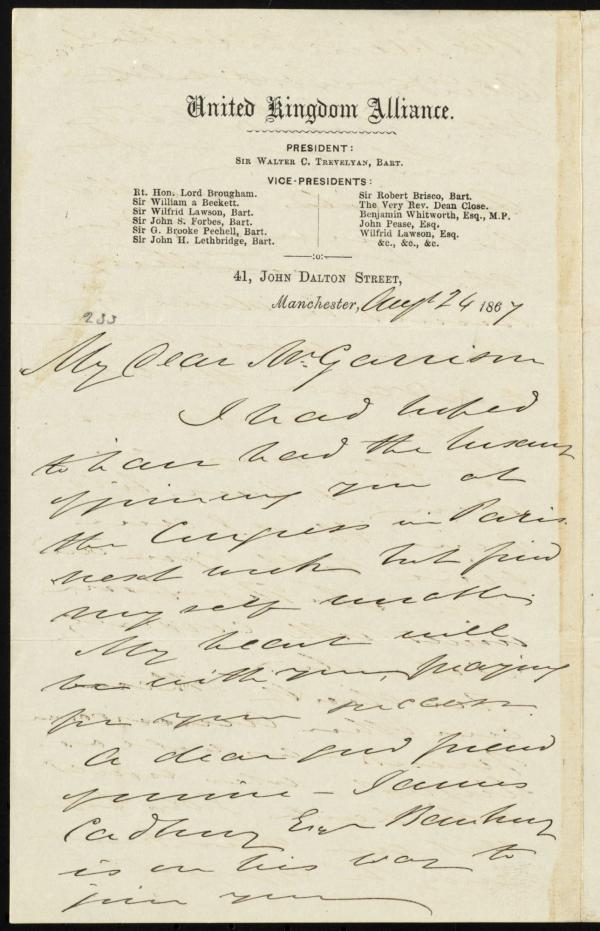 United Kingdom Alliance.
PRESIDENT:
SIR WALTER C. TREVELYAN, BART.
VICE-PRESIDENTS:
Rt. Hon. Lord Brougham.
Sir William a Beckett.
Sir Wilfrid Lawson, Bart.
Sir John S. Forbes, Bart.
Sir G. Brooke Pechell, Bart.
Sir John H. Lethbridge, Bart.
Sir Robert Brisco, Bart.
The Very Rev. Dean Close.
Benjamin Whitworth, Esq., M.P.
John Pease, Esq.
Wilfrid Lawson, Esq.
&c., &c., &c.
:o:
41, JOHN DALTON STREET,
Manchester, Augt 24 1867
233
My Dear Mr. Garrison
I had hoped
to have had the luxury
of joining you at
the Congress in Paris
next week but find
myself unable.
My heart will
be with you, praying
for your success.
A dear good friend
of mine – James
Cadbury Esqr Banbury
is on his way to
join you